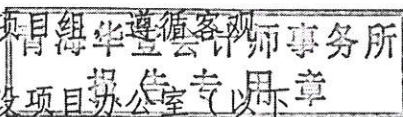 项目组，遵循客观
青海华会计师事务所
报告专用章
项目办公室（以下